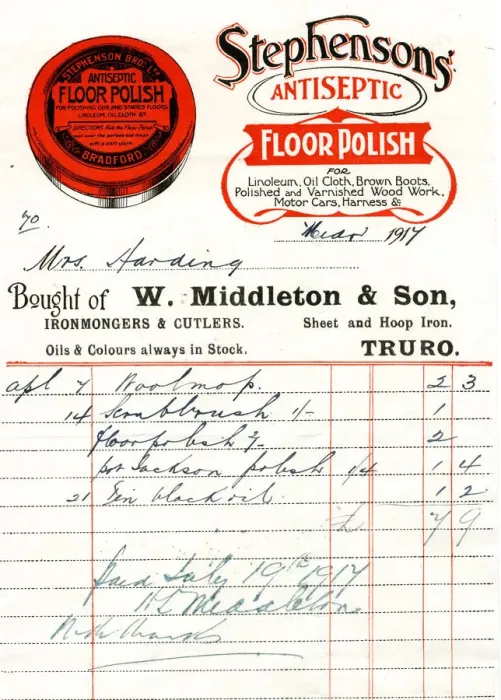 STEPHENSON BRO. LTD
ANTISEPTIC
FLOOR POLISH
FOR POLISHING OAK AND STAINED FLOORS
LINOLEUM, OILCLOTH, &c.
BRADFORD
Stephensons'
ANTISEPTIC
FLOOR POLISH
FOR
Linoleum, Oil Cloth, Brown Boots,
Polished and Varnished Wood Work,
Motor Cars, Harness &c
1917
Mrs. Harding
Bought of W. Middleton & Son,
IRONMONGERS & CUTLERS. Sheet and Hoop Iron.
Oils & Colours always in Stock. TRURO.
apl 7 Woolmop. 2 3
14 Scrubbrush 1/- 1
floorpolish 2/- 2
pot Jackson polish 1/4 1 4
21 Tin black oil 1 2
7 9
Paid July 19th 1917
Middleton
With thanks